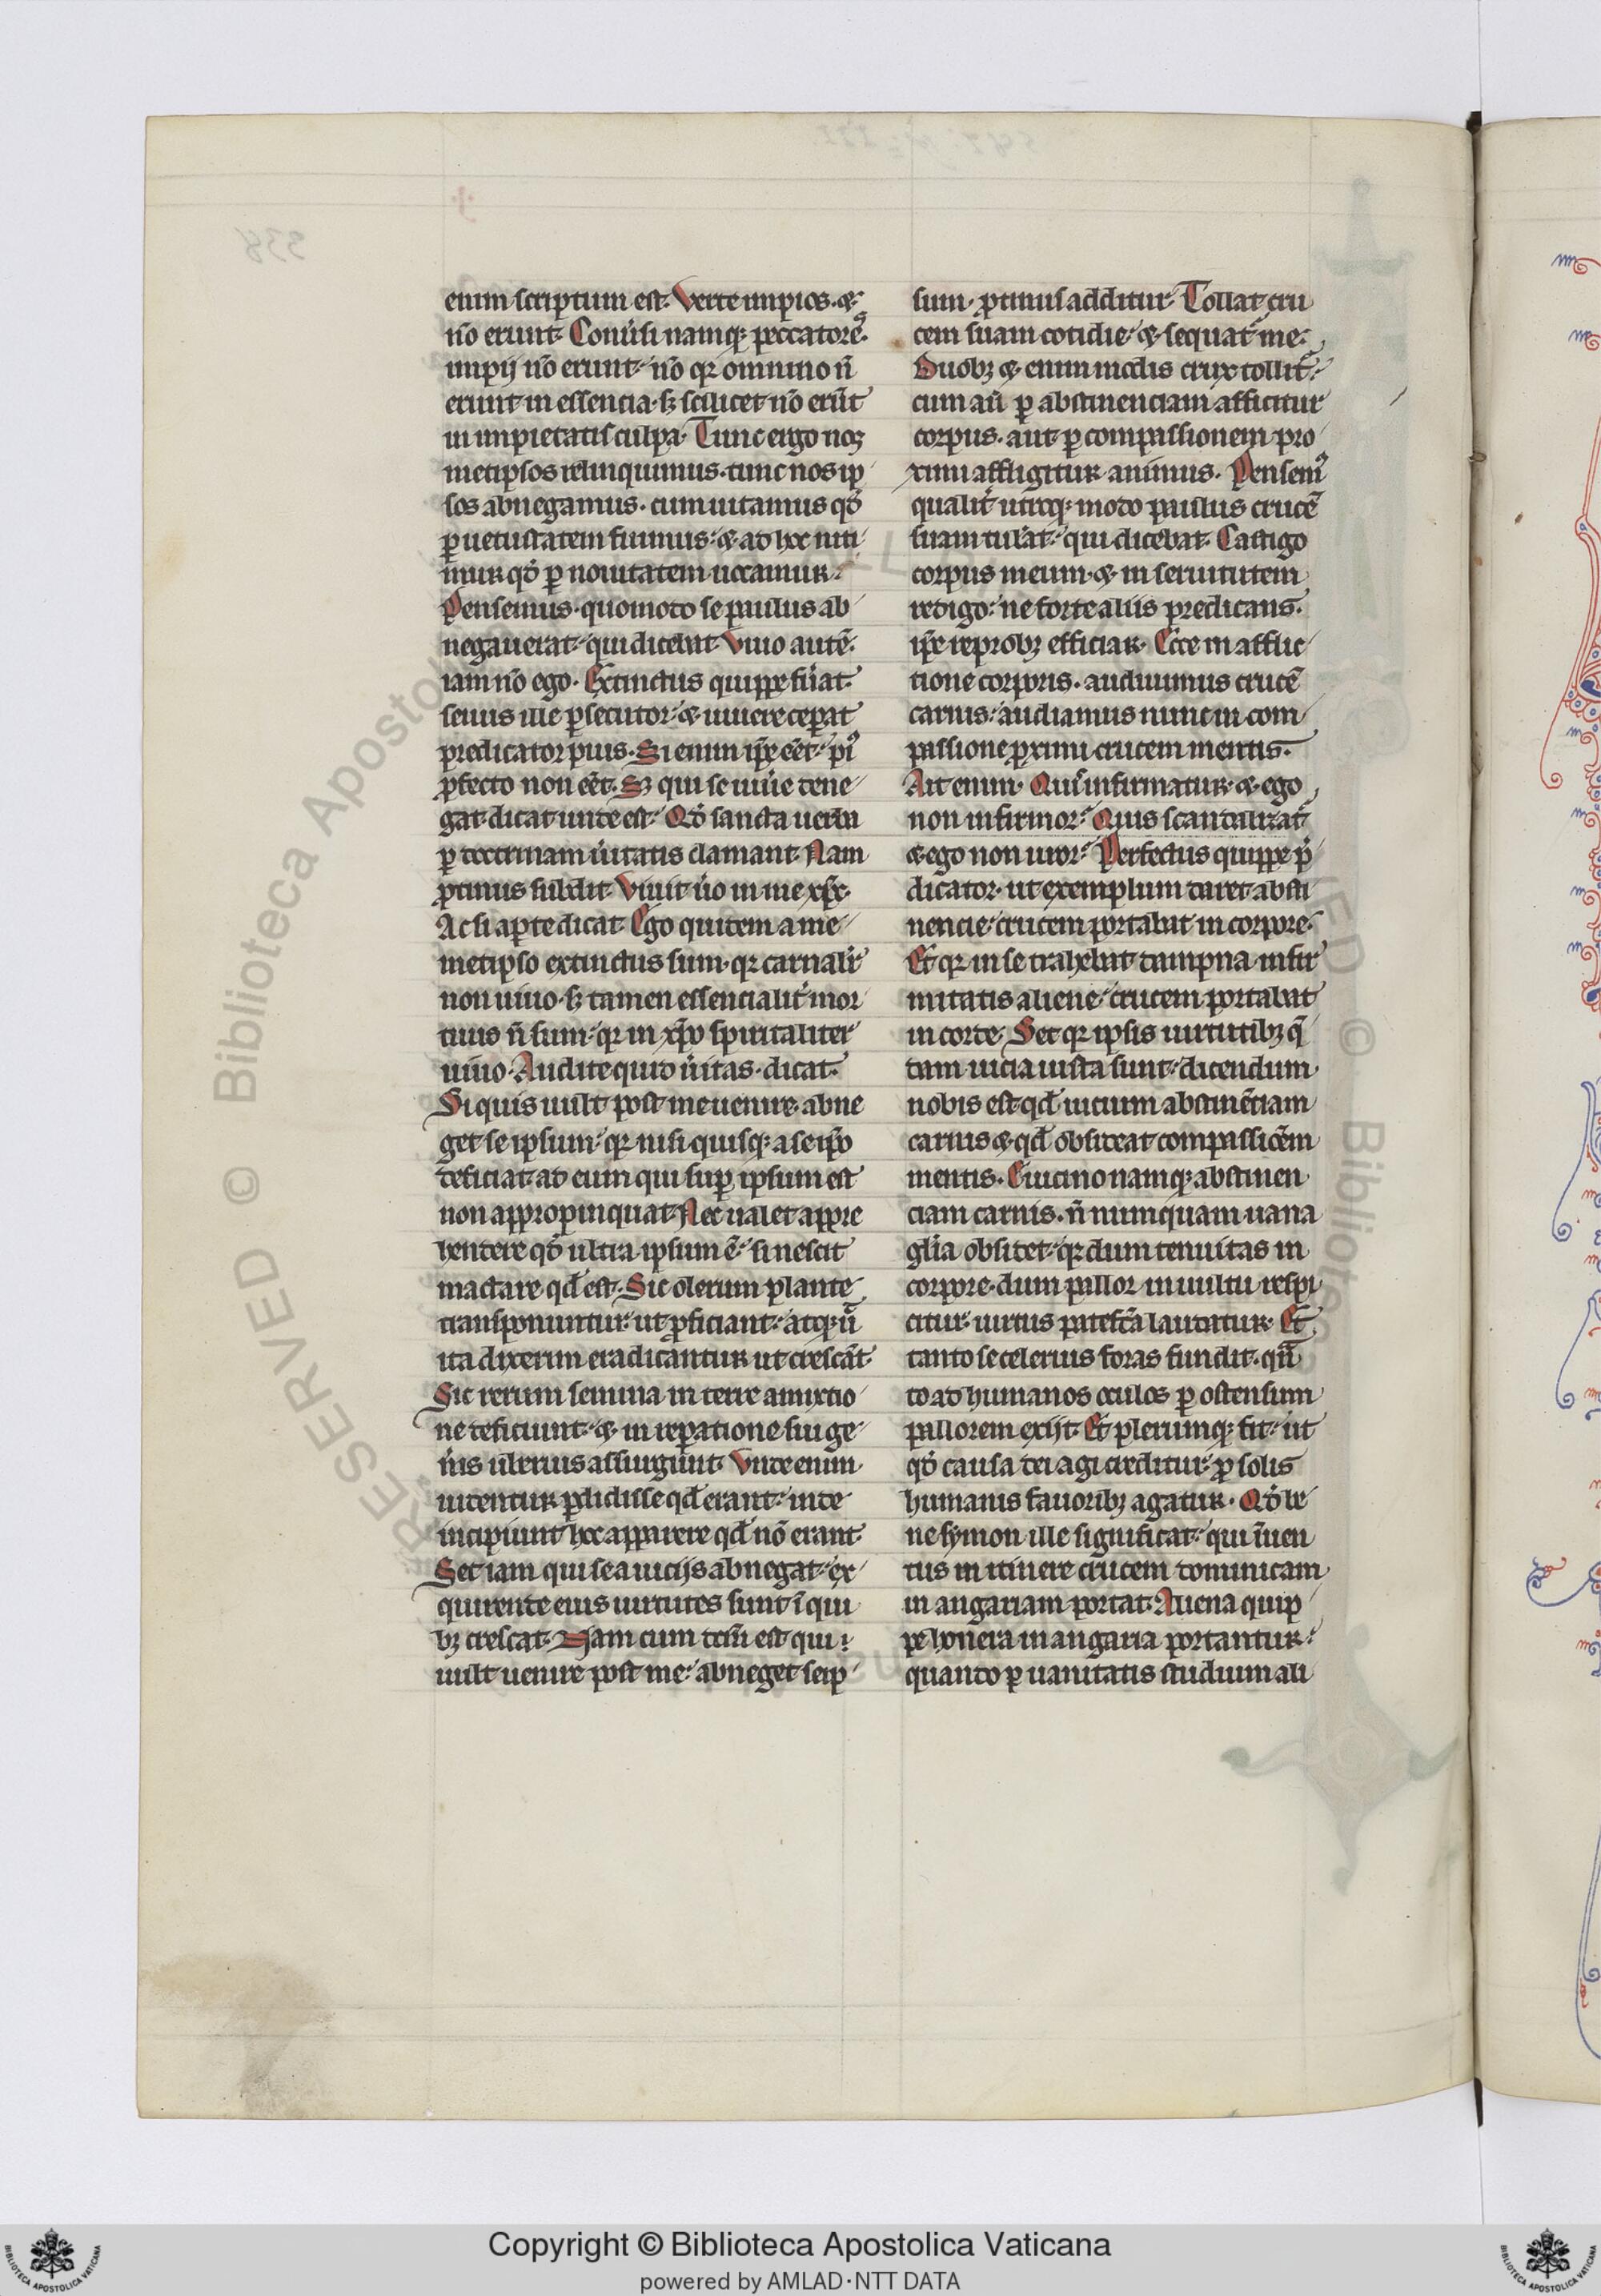 enim scriptum est. Verte impios. ⁊
nō erunt. Conuˀsi namqꝫ peccatoreˢ.
impij nō erunt. nō qꝛ omnino n̄
erunt in essencia. sꝫ scilicet nō erūt
in impietatis culpa. Tunc ergo nos
metipsos relinquimus. tunc nos ip
sos abnegamus. cum uitamus qđ
ꝑ uetustatem fuimus. ⁊ ad hoc niti
mur qđ ꝑ nouitatem uocamur.
Pensemus. quomodo se paulus ab
negauerat. qui dicebat. Viuo autē.
iam nō ego. Extinctus quippe fuˀat
seuus ille ꝑsecutor. ⁊ uiuere ceperat
predicator pius. Si enim ip̄e eēt. piˀ
ꝓfecto non eēt. Sꝫ qui se uiuˀe dene
gat. dicat unde est. Qđ sancta uerba
ꝑ doctrinam uˀitatis clamant. Nam
ꝓtinus subdit. Viuit uˀo in me xp̄c.
Ac si aperte dicat. Ego quidem a me
metipso extinctus sum. qꝛ carnalitˀ
non uiuo. sꝫ tamen essencialitˀ mor
tuus n̄ sum. qꝛ in xp̄o spiritaliter
uiuo. Audite quid uˀitas dicat.
Si quis uult post me uenire. abne
get se ipsum. qꝛ nisi quisqꝫ a se ip̄o
deficiat. ad eum qui suꝑ ipsum est
non appropinquat. Nec ualet appre
hendere qđ ultra ipsum ē. si nescit
mactare qđ est. Sic olerum plante
transponuntur. ut ꝓficiant. atqꝫ uᵗ
ita dixerim eradicantur ut crescāt.
Sic rerum semina in terre amixtio
ne deficiunt. ⁊ in reꝑatione sui ge
nˀis ubˀerius assurgunt. Vnde enim
uidentur ꝑdidisse qđ erant. inde
incipiunt hoc apparere qđ nō erant.
Set iam qui se a uicijs abnegat. ex
quirende eius uirtutes sunt ī qui
bꝫ crescat. Nam cum dcm̄ est qui
uult uenire post me. abneget seip
sum. ꝓtinus additur. Tollat cru
cem suam cotidie. ⁊ sequatˀ me.
Duobꝫ ⁊enim modis crux tollitˀ.
cum aū ꝑ abstinenciam afficitur
corpus. aut ꝑ compassionem pro
ximi affligitur animus. Pensemˀ
qualitˀ utroqꝫ modo paulus crucē
suam tulˀat. qui dicebat. Castigo
corpus meum. ⁊ in seruitutem
redigo. ne forte aliis predicans.
ip̄e reprobꝫ efficiar. Ecce in afflic
tione corporis. audiuimus crucē
carnis. audiamus nunc in com
passione ꝓximi crucem mentis.
Ait enim. Quis infirmatur. ⁊ ego
non infirmor. Quis scandalizatˀ
⁊ ego non uror. Perfectus quippe pˀ
dicator. ut exemplum daret absti
nencie. crucem portabat in corpore.
Et qꝛ in se trahebat dampna infir
mitatis aliene. crucem portabat
in corde. Set qꝛ ipsis uirtutibꝫ q̄
dam uicia iuxta sunt. dicendum
nobis est qđ uicium abstinētiam
carnis ⁊ qđ obsideat compassiōem
mentis. E uicino namqꝫ abstinen
ciam carnis. n̄ numquam uana
glīa obsidet. qꝛ dum tenuitas in
corpore. dum pallor in uultu respi
citur. uirtus patefc̄a laudatur. Et
tanto se celerius foras fundit. quā
to ad humanos oculos ꝑ ostensum
pallorem exijt. Et plerumqꝫ fit. ut
qđ causa dei agi creditur. ꝓ solis
humanis fauoribꝫ agatur. Qđ be
ne symon ille significat. qui īuen
tus in itinere crucem dominicam
in angariam portat. Aliena quip
pe honera in angaria portantur.
quando ꝑ uanitatis studium ali
Copyright © Biblioteca Apostolica Vaticana
powered by AMLAD·NTT DATA